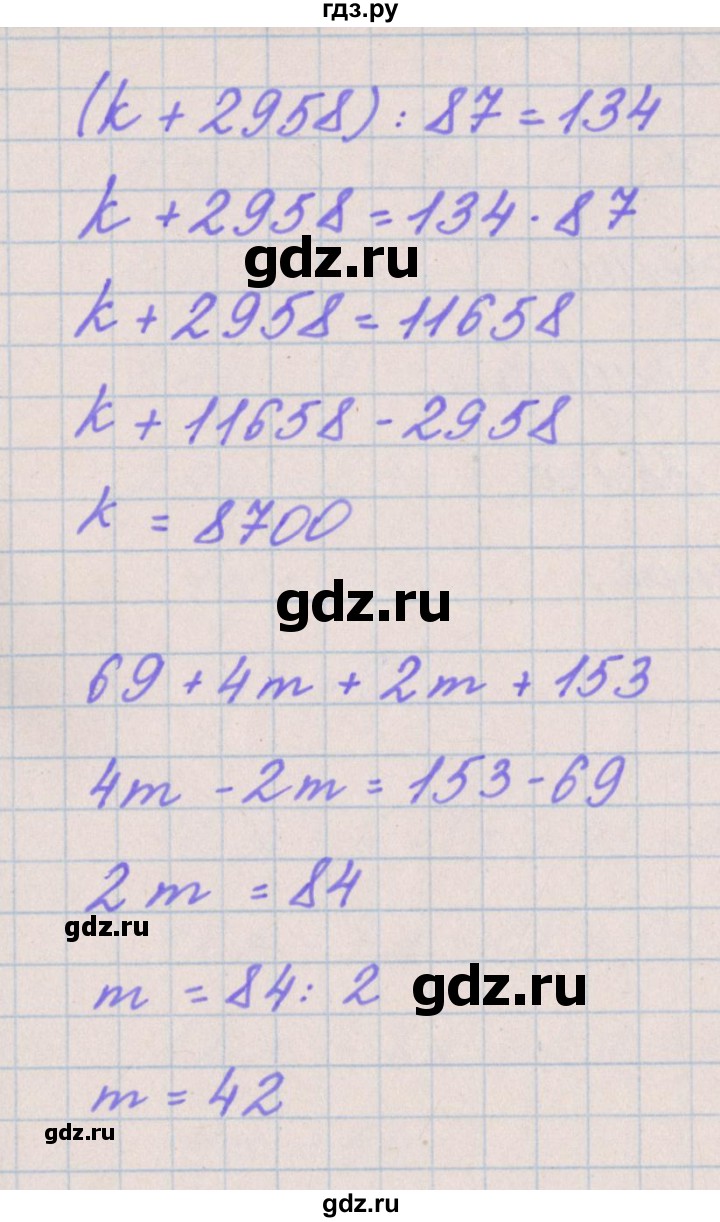 гдз.ру
(k + 2958) : 87 = 134
k + 2958 = 134 · 87
gdz.ru
k + 2958 = 11658
k + 11658 - 2958
k = 8700
gdz.ru
69 + 4m + 2m + 153
4m - 2m = 153 - 69
2m = 84
gdz.ru
m = 84 : 2
gdz.ru
m = 42
gdz.ru
gdz.ru